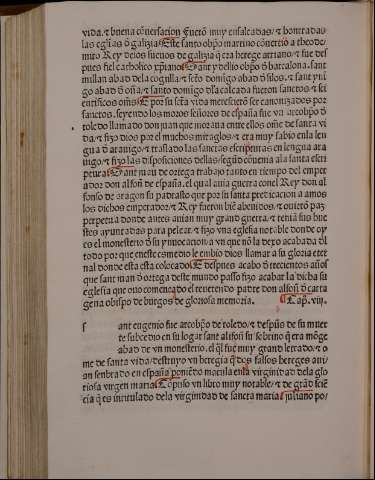 vida. ⁊ buena cõuersacion fuerõ muy ensalcadas/ ⁊ honrradas
las egłias d̃ galizia/ Este santo obpõ martino cõuertio a theode/
miro Rey delos sueuos de galizia q̃ era herege arriano/ ⁊ fue des
pues fiel catholico xp̃iano/ Sant ydelio obpõ d̃ barcalona. sant
millan abad dela cogulla/ ⁊ sctõ domigo abad d̃ silos. ⁊ sant yni
go abad d̃ oña/ ⁊ santo domingo dla calcada fueron sanctos/ ⁊ sci
entificos om̃s/ E por su sctã vida merescierõ ser canonizados por
sanctos. seyendo los moros señores de españa fue vn arcobpõ d̃
toledo llamado don juan que moraua entre ellos om̃e de santa vi
da/ ⁊ fizo dios por el muchos miraglos/ ⁊ era muy sabio enla len
gua d̃ arauigo/ ⁊ traslado las sanctas escripturas en lengua ara
uiga/ ⁊ fizo las disposiciones dellas/ segũd cõuenia ala santa escri
ptura/ Sant juan de ortega trabajo tanto en tiempo del emper
ador don alfon̄ de españa. el qual auia guerra conel Rey don al
fonso de aragon su padrasto que por su santa predicacion a amos
los dichos emperador/ ⁊ Rey fueron biẽ abenidos/ ⁊ ouierõ paz
perpetua donde antes auian muy grand guerra/ ⁊ tenia sus hue
stes ayuntadas para pelear. ⁊ fizo vna eglesia notable donde oy
es el monesterio d̃ su ynuocacion a vn que nõ la dexo acabada dl
todo por que eneste comedio le embio dios llamar a su gloria eter
nal donde esta esta colocado/ E despues acabo d̃ trecientos años
que sant juan d̃ ortega deste mundo passo fizo acabar la dicha su
eglesia que ouo comencado el reuerendo padre don alfon̄ d̃ carta
gena obispo de burgos de gloriosa memoria. Cap. viij.
s ant eugenio fue arcobpõ de toledo/ ⁊ despũs de su muer
te subcedio en su logar sant alifon̄ su sobrino q̃ era mõge
abad de vn monesterio. el ql̃ fue muy grand letrado. ⁊ o
me de santa vida/ destruyo vn heregia q̃ dos falsos hereges aui/
an senbrado en españa poniẽdo macula enla virginidad dela glo
riosa virgen maria/ Cõpuso vn libro muy notable/ ⁊ de grãd sciẽ
cia q̃ es intitulado dela virginidad de sancta maria/ juliano po/